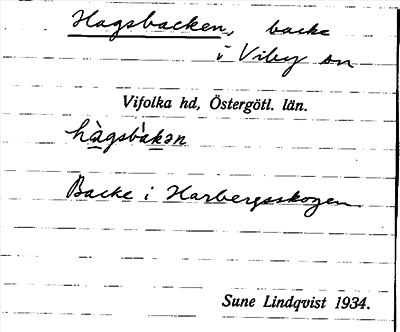 Hagsbacken, backe
i Viby sn
Vifolka hd, Östergötl. län.
hàgsbàkən
Backe i Harbergsskogen
Sune Lindqvist 1934.